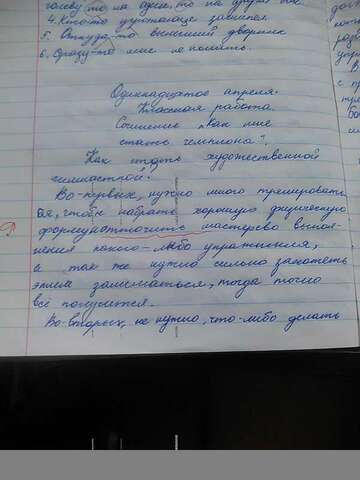 голову то на один, то на другой бок
4. Кто-то
5. Откуда-то дворник
6. Сразу-то мне не понять.
Одиннадцатое апреля.
Классная работа.
Сочинение „Как мне
стать чемпиона?"
Как стать художественной
гимнасткой?
Во-первых, нужно много тренировать
ся, чтобы набрать хорошую физическую
форму и отточить мастерство выпол-
нения какого-либо упражнения,
а так же нужно сильно захотеть
этим заниматься, тогда точно
всё получится.
Во-вторых, не нужно, что-либо делать